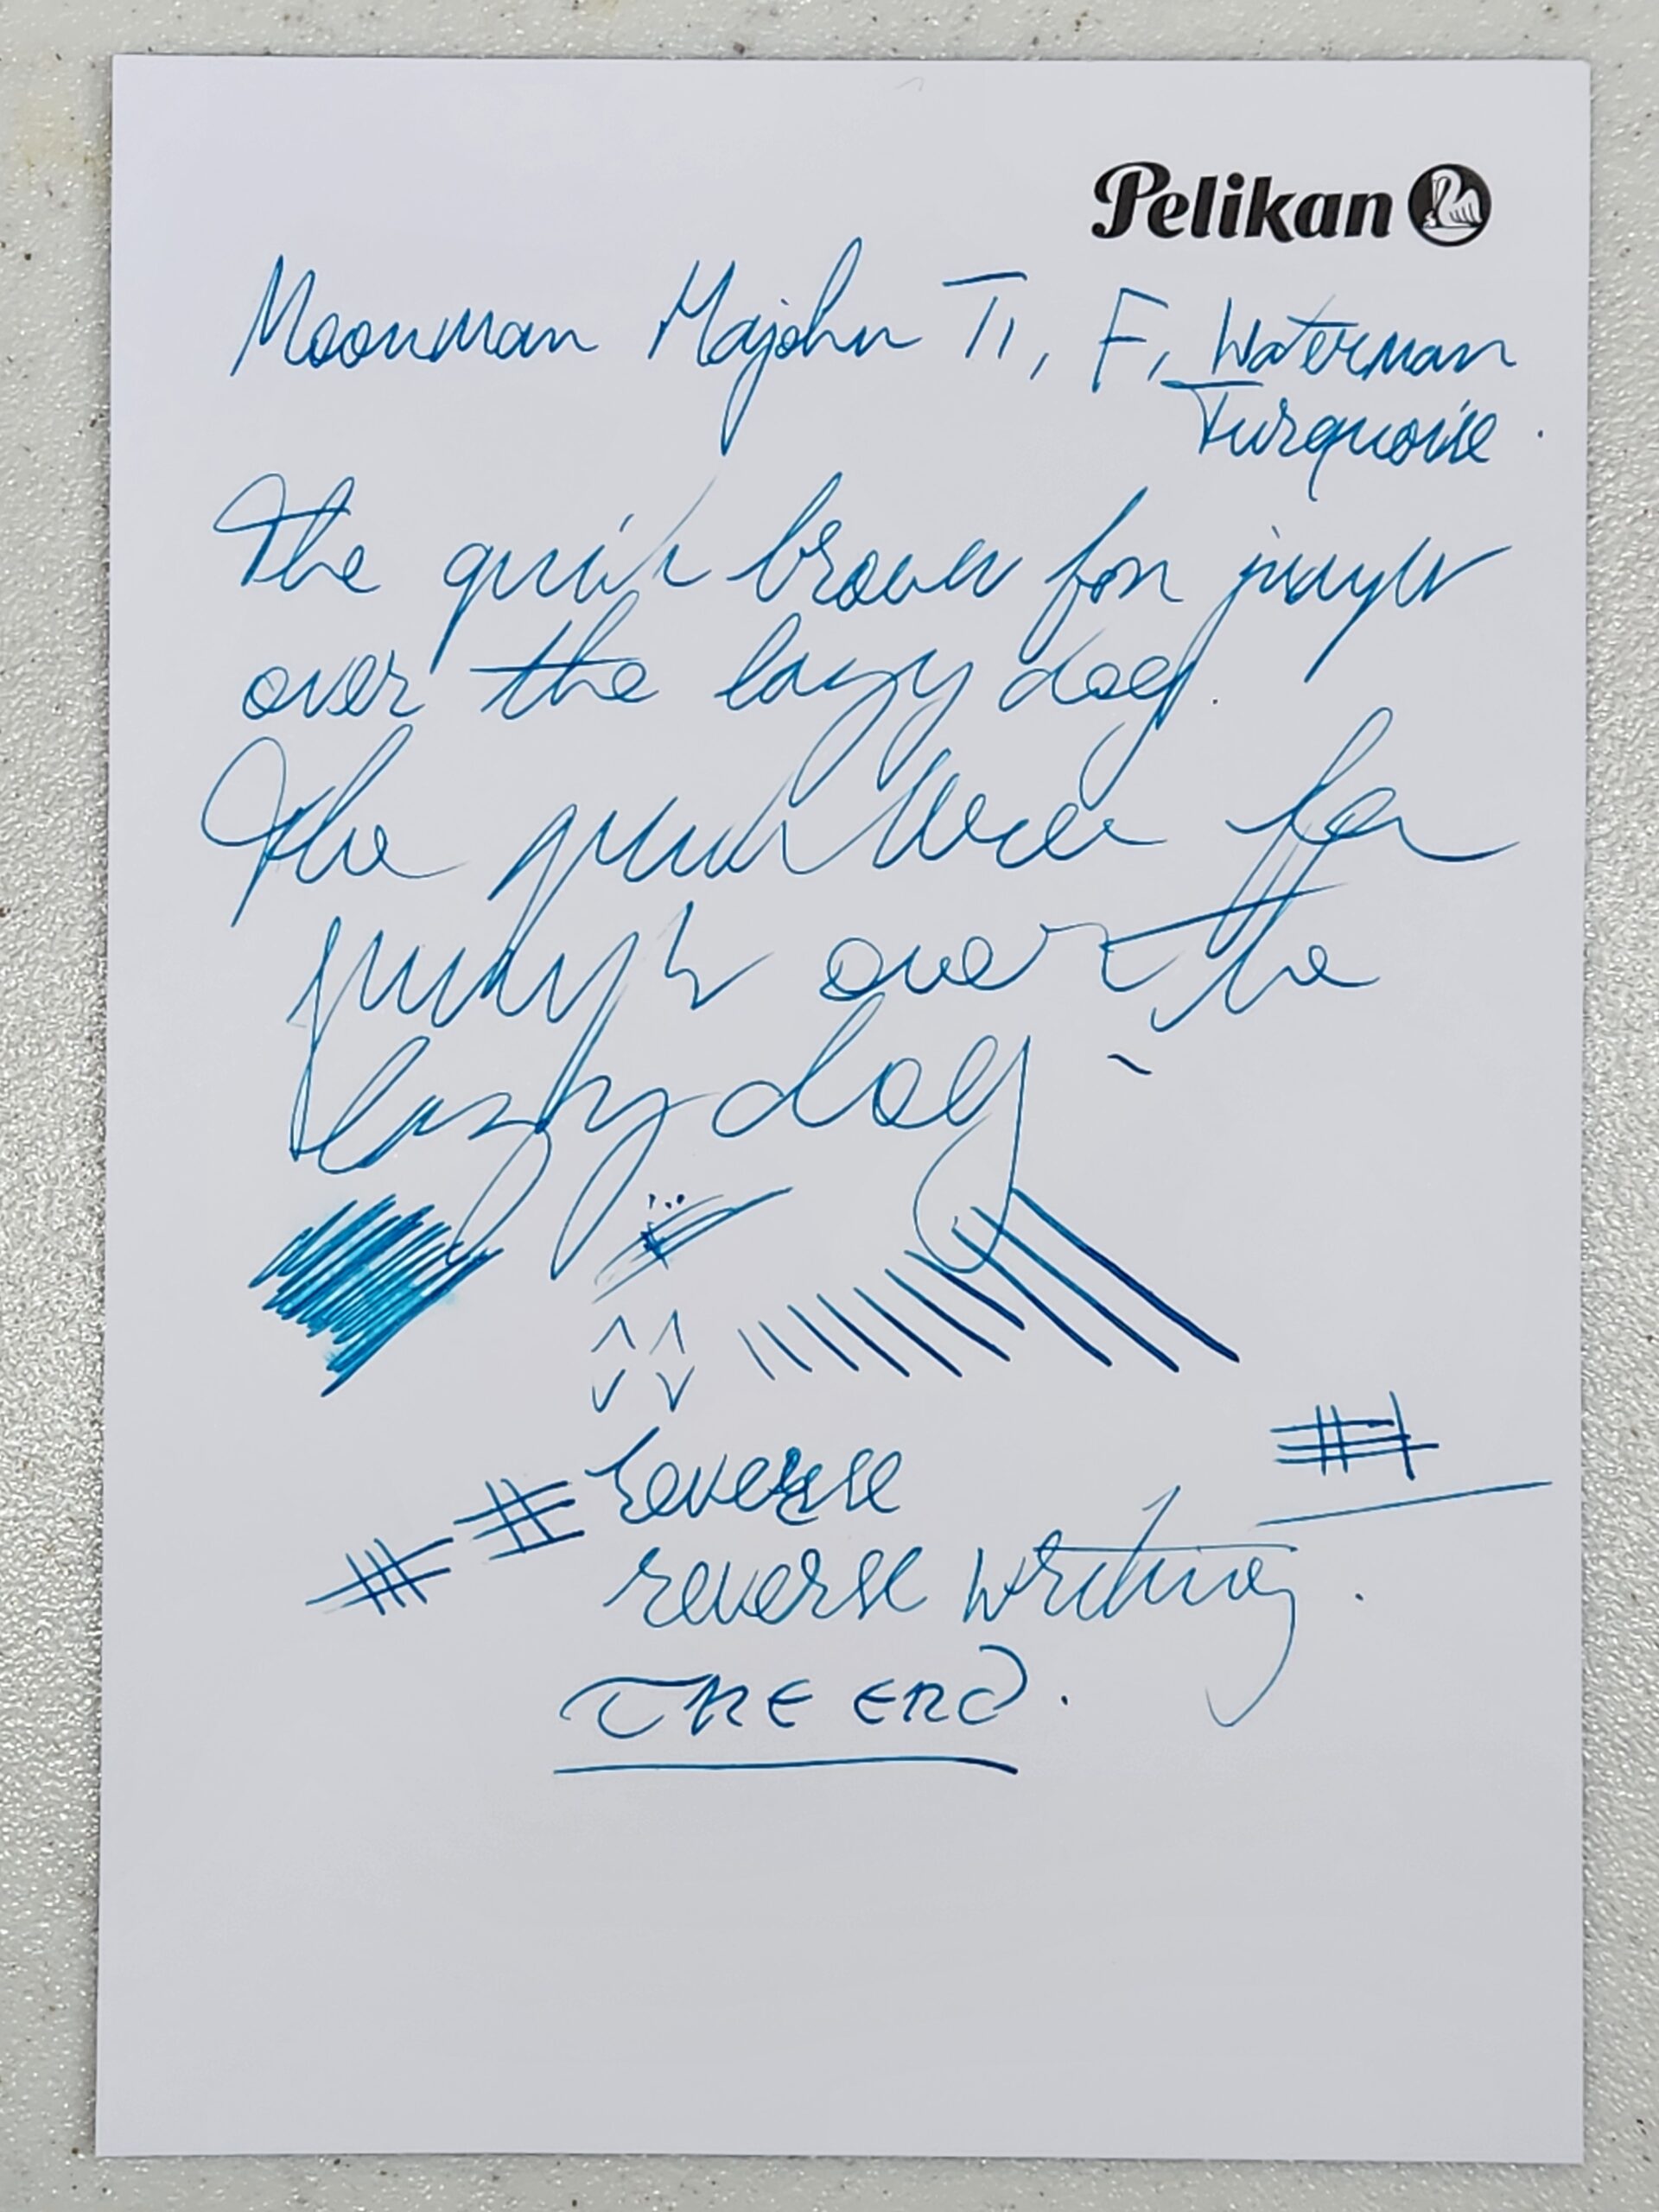 Pelikan
Moonman Majohn T1, F, Waterman
Turquoise.
The quick brown fox jumps
over the lazy dog.
The quick brown fox
jumps over the
lazy dog
reverse
reverse writing.
THE END.